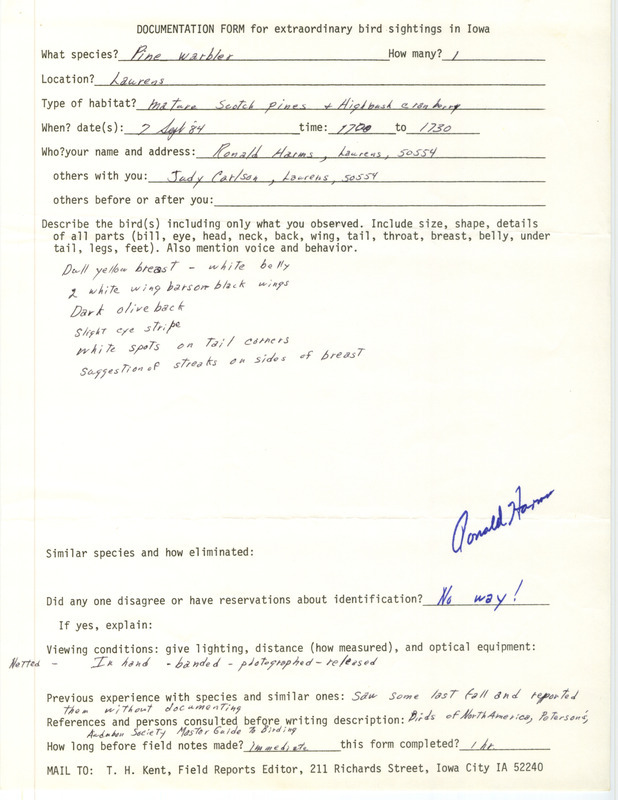 DOCUMENTATION FORM for extraordinary bird sightings in Iowa
What species? Pine warbler How many? 1
Location? Laurens
Type of habitat? mature Scotch pines + Highbush cranberry
When? date(s): 7 Sept 84 time: 1700 to 1730
Who?your name and address: Ronald Harms, Laurens, 50554
others with you: Judy Carlson, Laurens, 50554
others before or after you:
Describe the bird(s) including only what you observed. Include size, shape, details
of all parts (bill, eye, head, neck, back, wing, tail, throat, breast, belly, under
tail, legs, feet). Also mention voice and behavior.
Dull yellow breast - white belly
2 white wing bars on black wings
Dark olive back
Slight eye stripe
White spots on tail corners
Suggestion of streaks on sides of breast
Ronald Harms
Similar species and how eliminated:
Did any one disagree or have reservations about identification? No way!
If yes, explain:
Viewing conditions: give lighting, distance (how measured), and optical equipment:
Netted - In hand - banded - photographed - released
Previous experience with species and similar ones: Saw some last fall and reported
them without documenting
References and persons consulted before writing description: Birds of North America, Peterson's,
Audubon Society Master Guide to Birding
How long before field notes made? immediate this form completed? 1 hr.
MAIL TO: T. H. Kent, Field Reports Editor, 211 Richards Street, Iowa City IA 52240